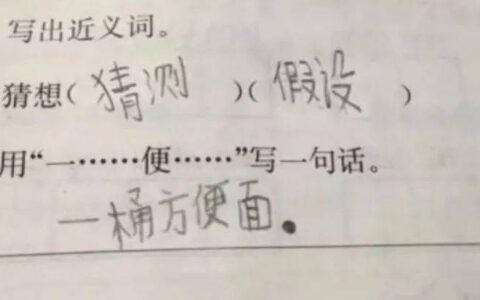 写出近义词。
猜想(猜测)(假设)
用“一……便……”写一句话。
一桶方便面。